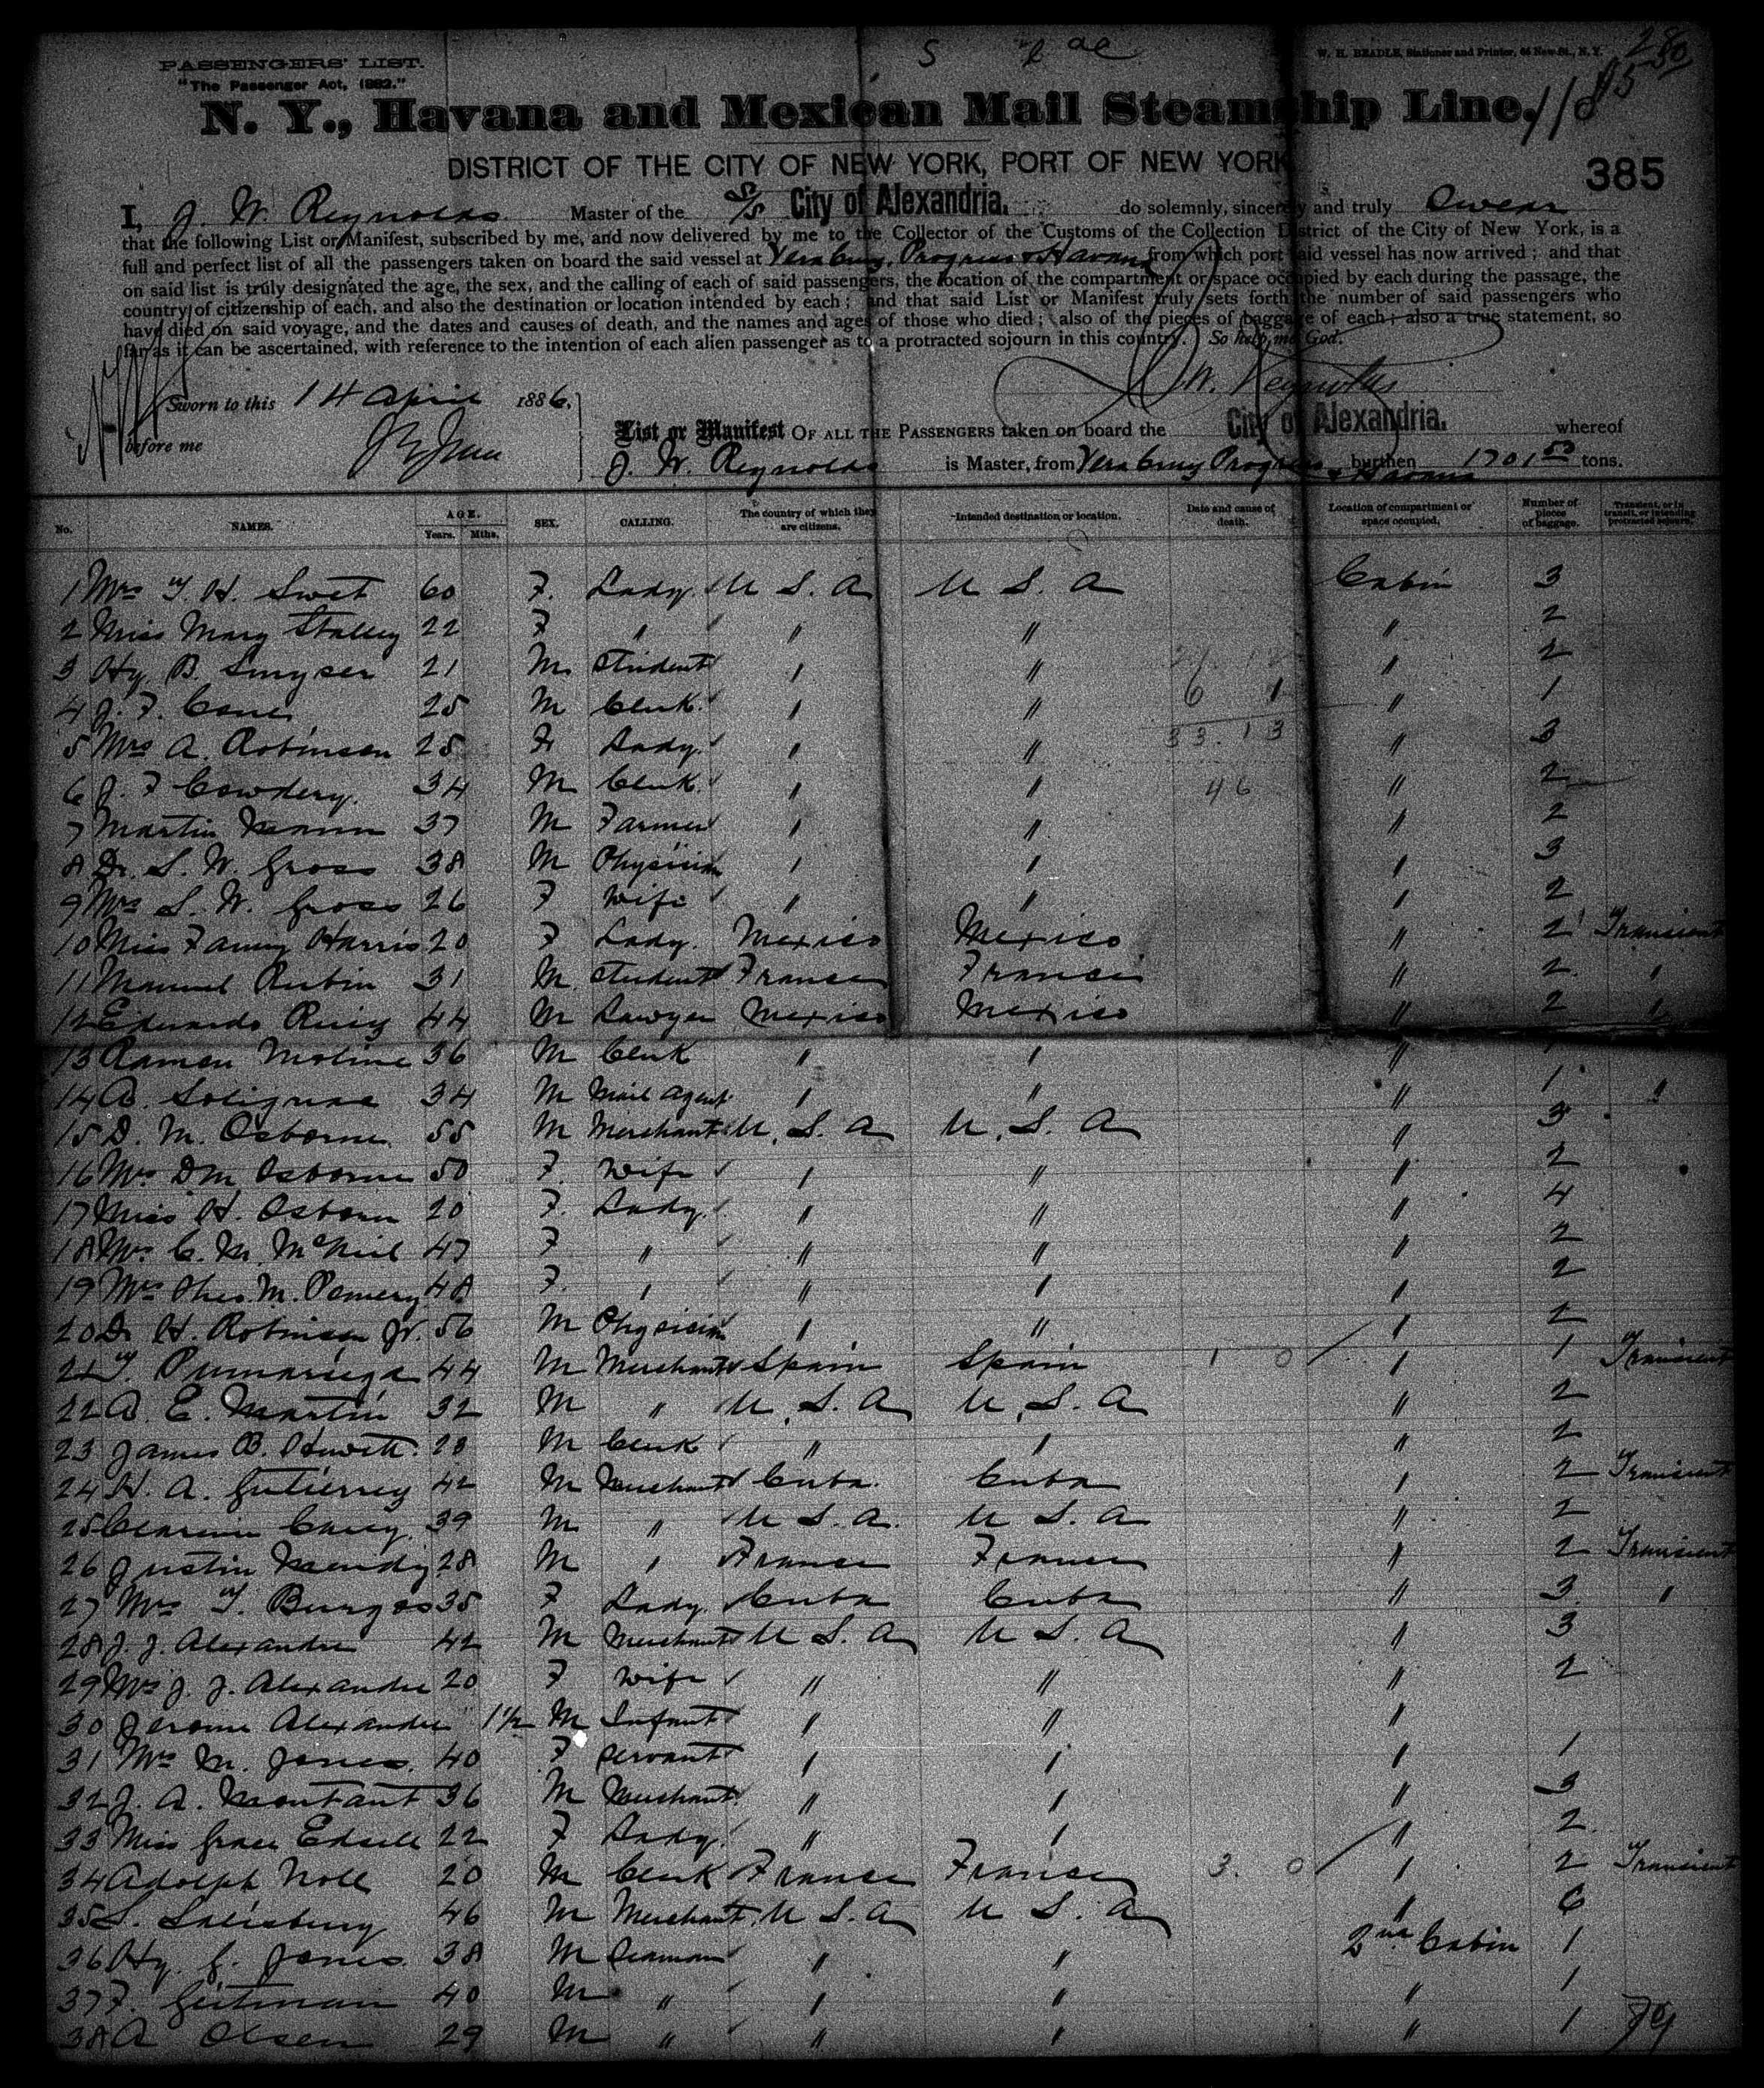 PASSENGERS' LIST.
"The Passenger Act, 1882."
W. H. BEADLE, Stationer and Printer, New St., N. Y.
N. Y., Havana and Mexican Mail Steamship Line.
DISTRICT OF THE CITY OF NEW YORK, PORT OF NEW YORK
385
I, J. W. Reynolds Master of the S/S City of Alexandria. do solemnly, sincerely and truly Swear
that the following List or Manifest, subscribed by me, and now delivered by me to the Collector of the Customs of the Collection District of the City of New York, is a
full and perfect list of all the passengers taken on board the said vessel at Vera Cruz, Progreso & Havana from which port said vessel has now arrived; and that
on said list is truly designated the age, the sex, and the calling of each of said passengers, the location of the compartment or space occupied by each during the passage, the
country of citizenship of each, and also the destination or location intended by each; and that said List or Manifest truly sets forth the number of said passengers who
have died on said voyage, and the dates and causes of death, and the names and ages of those who died; also of the pieces of baggage of each; also a true statement, so
far as it can be ascertained, with reference to the intention of each alien passenger as to a protracted sojourn in this country. So help me God.
J. W. Reynolds
Sworn to this 14 April 1886.
before me
List or Manifest OF ALL THE PASSENGERS taken on board the City of Alexandria. whereof
J. W. Reynolds is Master, from Vera Cruz Progreso & Havana burthen 1701 53 tons.
No. NAMES. AGE. Years. Mths. SEX. CALLING. The country of which they are citizens. Intended destination or location. Date and cause of death. Location of compartment or space occupied. Number of pieces of baggage. Transient, or in transit, or intending protracted sojourn.
1 Mrs Y. H. Swet 60 F. Lady U S. A U S. A Cabin 3
2 Miss Mary Stalley 22 F " " " " 2
3 Hy B. Smyser 21 M Student " " " 2
4 J. F. Cone 25 M Clerk " " " 1
5 Mrs A. Robinson 25 F Lady " " " 3
6 J. F Cowdery. 34 M Clerk " " " 2
7 Martin 37 M Farmer " " " 2
8 Dr. S. W. Gross 38 M Physician " " " 3
9 Mrs S. W. Gross 26 F Wife " " " 2
10 Miss Fanny Harris 20 F Lady. Mexico Mexico " 2 Transient
11 Manuel Rubin 31 M Student France France " 2 "
12 Eduardo Ruiz 44 M Lawyer Mexico Mexico " 2 "
13 Ramon Moline 36 M Clerk " " " 1
14 A. Solignac 34 M Mail Agent " " " 1 "
15 D. M. Osborne 55 M Merchant U. S. A U. S. A " 3
16 Mrs D M Osborne 50 F. Wife " " " 2
17 Miss H. Osborn 20 F. Lady. " " " 4
18 Mrs C. M. McNeil 47 F " " " " 2
19 Mrs Theo. M. Pomery 48 F. " " " " 2
20 Dr H. Robinson Jr. 56 M Physician " " " 2
21 Y. Pumariega 44 M Merchant Spain Spain 1 0 " 1 Transient
22 A. E. Martin 32 M " U. S. A U. S. A " 2
23 James B. Hewett. 28 M Clerk " " " 2
24 H. A. Gutierrez 42 M Merchant Cuba. Cuba " 2 Transient
25 Clarence Carey. 39 M " U S. A. U S. A " 2
26 Justin 28 M " France France " 2 Transient
27 Mrs Y. Burgos 35 F Lady. Cuba Cuba " 3 "
28 J. J. Alexandre 42 M Merchant U S. A U S. A " 3
29 Mrs J. J. Alexandre 20 F Wife " " " 2
30 Jerome Alexandre 1 1/2 M Infant " " "
31 Mrs M. Jones. 40 F Servant " " " 1
32 J. A. Montant 36 M Merchant " " " 3
33 Miss Grace Edsell 22 F Lady. " " " 2
34 Adolph Noll 20 M Clerk France France 3. 0 " 2 Transient
35 S. Salisbury 46 M Merchant U S. A U S. A " 6
36 Hy. G. Jones 38 M Seaman " " 2nd Cabin 1
37 F. 40 M " " " " 1
38 A Olsen 29 M " " " " 1